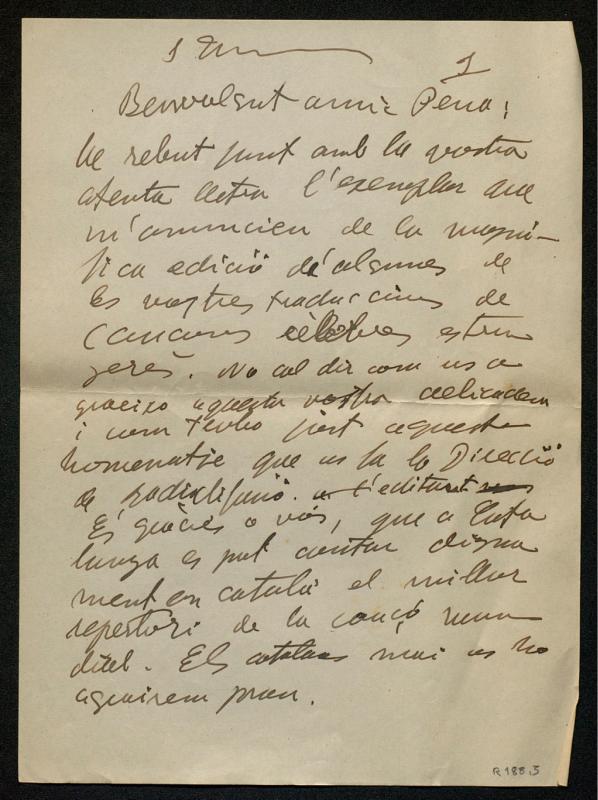 1
Benvolgut amic Pena:
he rebut junt amb la vostra
atenta lletra l'exemplar que
m'anuncieu de la magní-
fica edició d'algunes de
les vostres traduccions de
cançons cèlebres estran
geres. No cal dir com us a
graeixo aquesta vostra delicadesa
i com trobo just aquest
homenatje que us fa la Direcció
de Radiodifusió
És gràcies a vós, que a Cata
lunya es pot cantar digna
ment en català el millor
repertori de la cançó mun
dial. Els catalans mai us ho
agrairem prou.
R 188,5